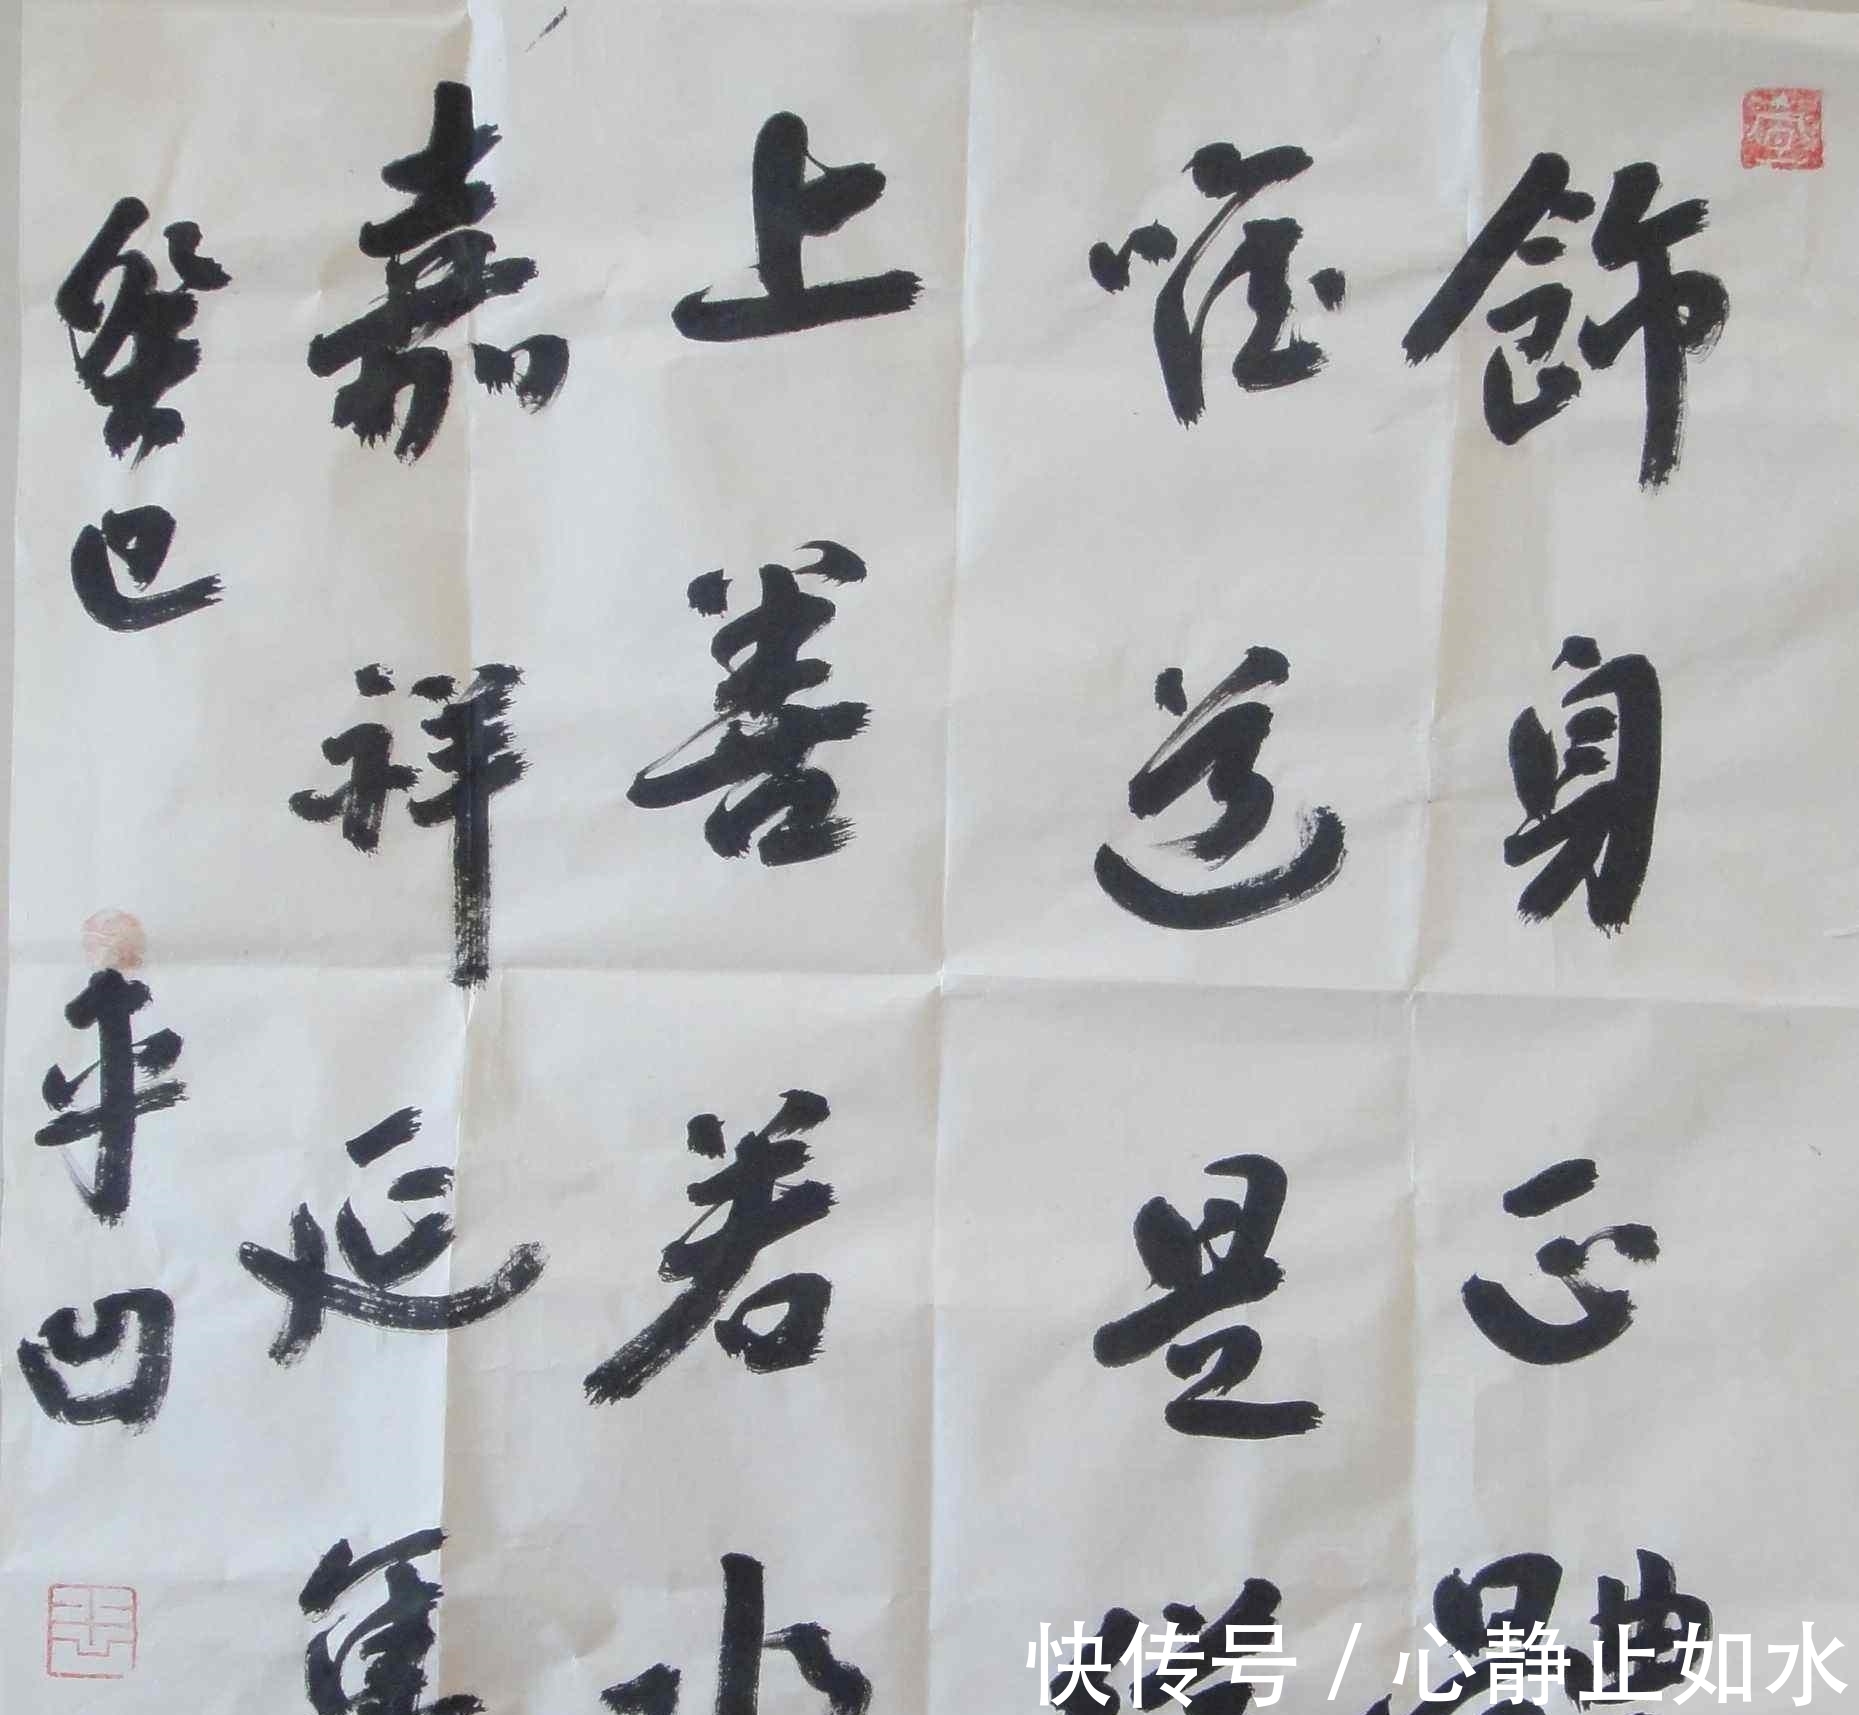 飾身正體
唯道是從
上善若水
嘉祥延集
癸巳 平凹
快传号 / 心静止如水